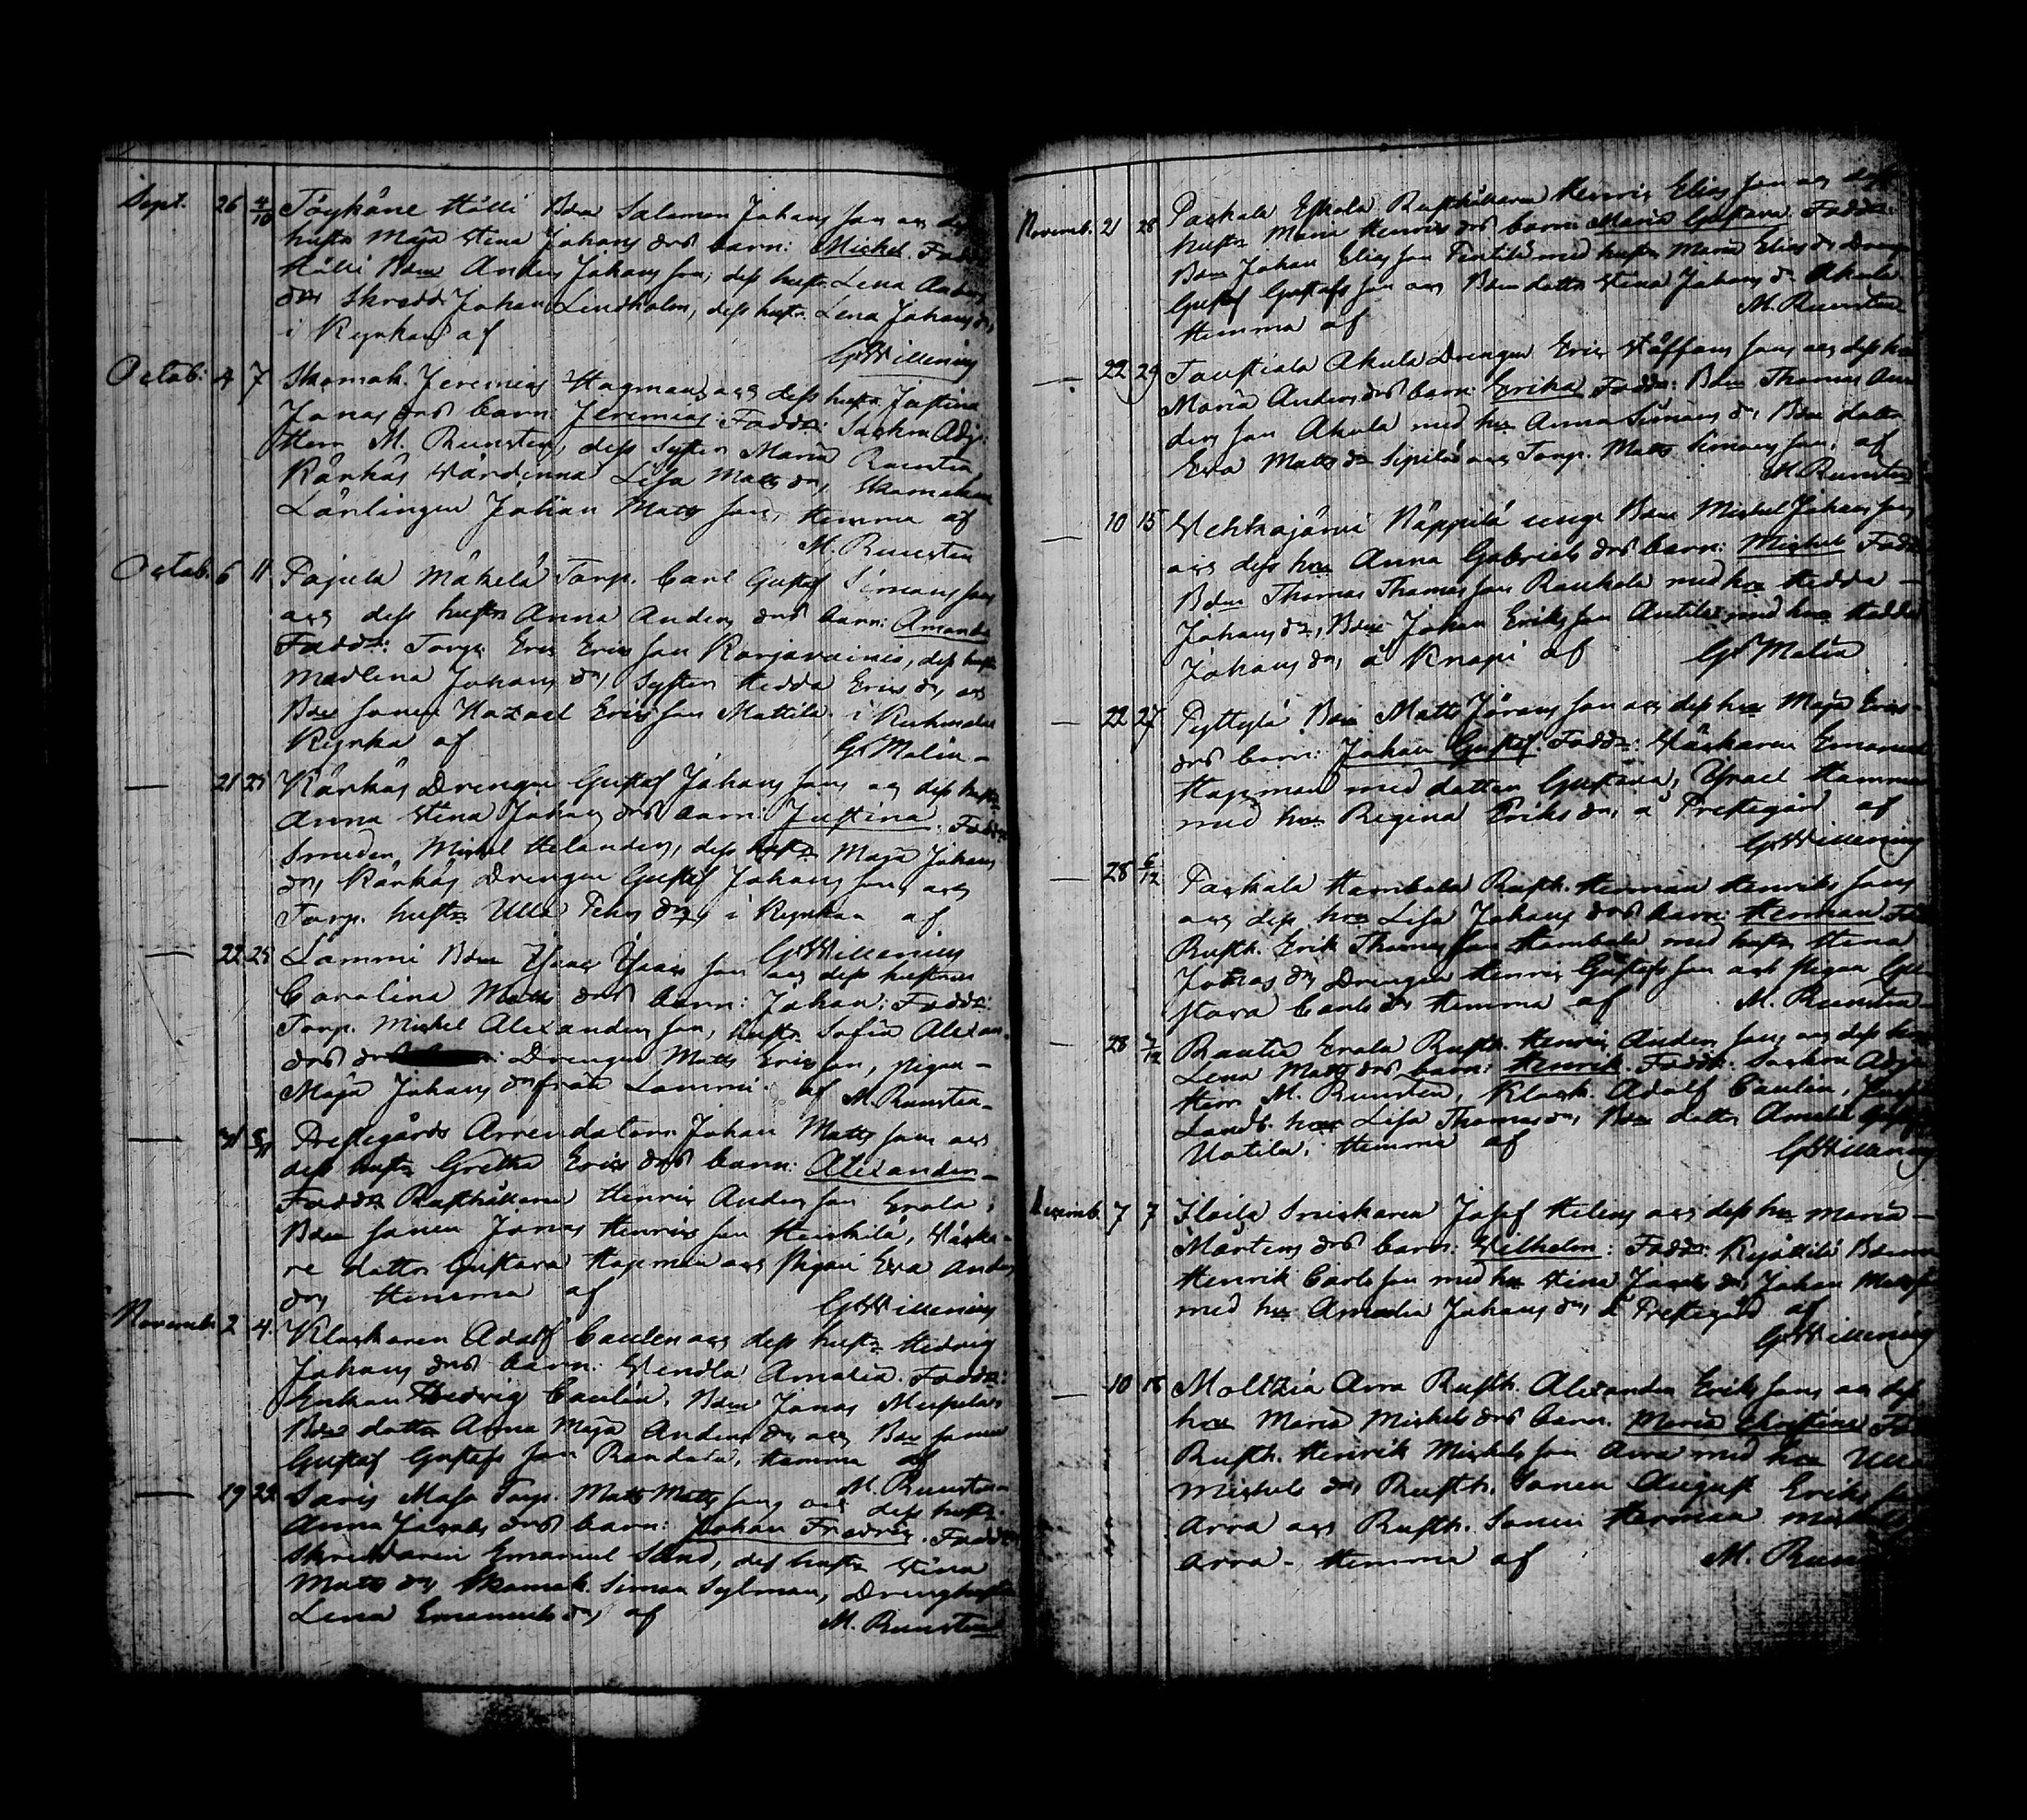 Sept. 26 4/10 Töykäne Hölli Bdn Salomon Johans son och dess
hustr Maja Stina Johans dotts barn: Michel. Fadd
Hölli Bdn Anders Johans son, dess hustr. Lena Anders
dr Skredd. Johan Lindholm, dess hustr. Lena Johans dr,
i Kyrkan af
G Willenius
Octob: 4 7 Skomak. Jeremias Hagman och dess hustr. Justina
Jonas dotts barn: Jeremias. Faddr: Sockne Adj.
Herr M. Runsten, dess Syster Maria Runsten,
Kärkäs Värdinna Lisa Matts dr, Skomakare
Lärlingen Johan Matts son, Hemma af
M. Runsten
Octob. 6 11 Pajula Mäkelä Torp. Carl Gustaf Simons son
och dess hustr Anna Anders dotts barn: Amanda
Faddr: Torp. Eric Erics son Korjavainio, dess hustr
Madlena Johans dr, Syster Hedda Erics dr, och
Bdn sonen Hazael Erics son Mattila i
Kyrka af
G Malin
— 21 25 Kärkäs Drengen Gustaf Johans son och dess hustr
Anna Stina Johans dotts barn: Justina. Faddr
Smeden Michel Helander, dess hustr Maja Johans
dr, Kärkäs Drengen Gustaf Johans son, och
Torp. hustr Ulla dr, i Kyrkan af
G Willenius
— 22 25 Lammi Bdn Isaac Isaacs son och dess hustru
Carolina Matts dotts barn: Johan: Faddr:
Torp. Michel Alexanders son, hustr Sofia Alexan-
ders dr Drengen Matts Erics son, pigan
Maja Johans dr från Lammi. af M. Runsten
— 31 5/11 Prestegårds Arrendatorn Johan Matts son och
dess hustr Gretha Erics dotts barn: Alexander
Faddr Rusthållaren Henric Anders son Erola,
Bdn sonen Jonas Henrics son Heickilä, Väska-
re dottr Gustava Hapman och Pigan Eva Anders
dr, Hemma af
G Willenius
Novemb. 2 4. Klockaren Adolf Caulen och dess hustr Hedvig
Johans dotts barn: Vendla Amalia. Faddr:
Enkan Hedvig Caulén, Bdn Jonas
Bdn dottr Anna Maja Anders dr och Bdn sonen
Gustaf Gustafs son Randala, Hemma af
M. Runsten
— 19 22 Saris Torp. Matts Matts son och dess hustr
Anna Jacobs dotts barn: Johan Fredric. Faddr
Skreddaren Emanuel Sand, dess hustr Stina
Matts dr, Skomak. Simon Sylman, Drenghustru
Lena Emanuels dr, af
M. Runsten
Novemb. 21 28 Paskala Eskola Rusthållaren Henric Elias son och dess
hustr Maria Henrics dotts barn: Maria Gustava. Faddr:
Bdn Johan Elias son Penttilä med hustr Maria Elias dr Dreng
Gustaf Gustafs son och Bdn dottr Stina Johans dr Akula
Hemma af
M. Runsten
— 22 29 Akula Drengen Eric Staffans son och dess hu
Maria Anders dotts barn: Erika Faddr: Bdn Thomas An-
ders son Akula med hu Anna Simons dr, Bdn dottr
Eva Matts dr Sipilä och Torp. Matts Simons son, af
M Runsten
— 10 15 Vehkajärvi Näppilä unge Bdn Michel Johans son
och dess hu Anna Gabriels dotts barn: Michel Faddr
Bdn Thomas Thomas son Raukola med hu Hedda
Johans dr, Bdn Johan Eriks son Anttila med hu Hedda
Johans dr, å af
G Malin
— 22 27 Pyttylä Bdn Matts Jörans son och dess hu Maja Erics
dotts barn: Johan Gustaf. Faddr: Väskaren Emanuel
Hapman med dotter Gustava, Israel Hamman
med hu Regina Eriks dr, å Prestegård af
G Willenius
— 28 6/12 Paskala Hambala Rusth. Herman Henriks son
och dess hu Lisa Johans dotts barn: Herman. Fadd
Rusth. Erik Thomas son Hambala med hustr Stina
Jonas dr, Drengen Henric Gustafs son och pigan Gu-
stava Carls dr Hemma af
M. Runsten
— 28 7/12 Rautia Erola Rusth. Henric Anders son och dess hu
Lena Matts dotts barn: Henrik. Faddr. Sockne Adj.
Herr M. Runsten, Klock. Adolf Caulen,
hu Lisa Thomas dr, Bdn dottr Amalia
Uotila, Hemma af
G Willenius
Decemb. 7 7 Iloila Snickaren Josef Helin och dess hu Maria
Mårtens dotts barn: Wilhelm: Faddr: Bdn
Henrik Carls son med hu Stina Jacobs dr, Johan Matts son
med hu Amalia Johans dr, å Prestegård af
G Willenius
— 10 15 Moltzia Arra Rusth. Alexander Eriks son och dess
hu Maria Michels dotts barn. Maria Christina Fa
Rusth. Henrik Michels son Arra med hu Ulla
Michels dr, Rusth. Sonen August Eriks son
Arra och Rusth. Sonen Herman Michels
Arra. Hemma af
M. Run